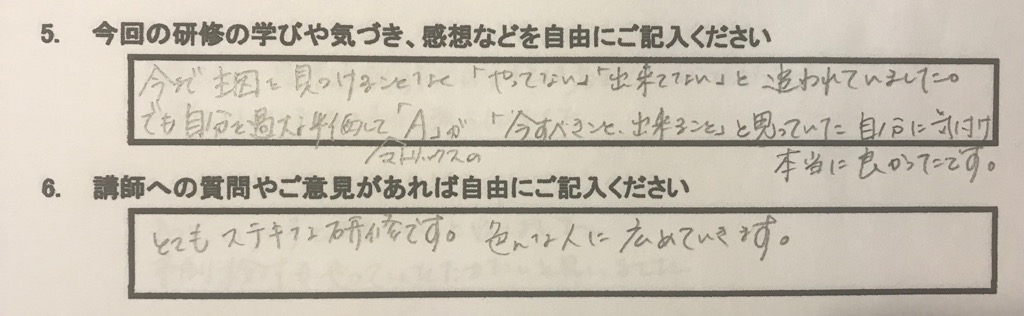 5. 今回の研修の学びや気づき、感想などを自由にご記入ください
今まで主因を見つけることなく「やってない」「出来てない」と追われていました。
でも自分を過大評価して「A」が「今すべきこと、出来ること」と思っていた自分に気付け
マトリックスの
本当に良かったです。
6. 講師への質問やご意見があれば自由にご記入ください
とてもステキな研修です。色んな人に広めていきます。